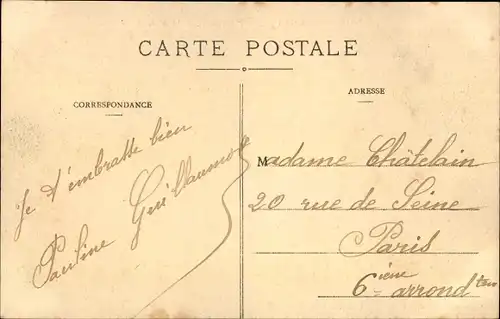 CARTE POSTALE
CORRESPONDANCE
Je t'embrasse bien
Pauline Guillaumot
ADRESSE
Madame Châtelain
20 rue de Seine
Paris
6ième arrond